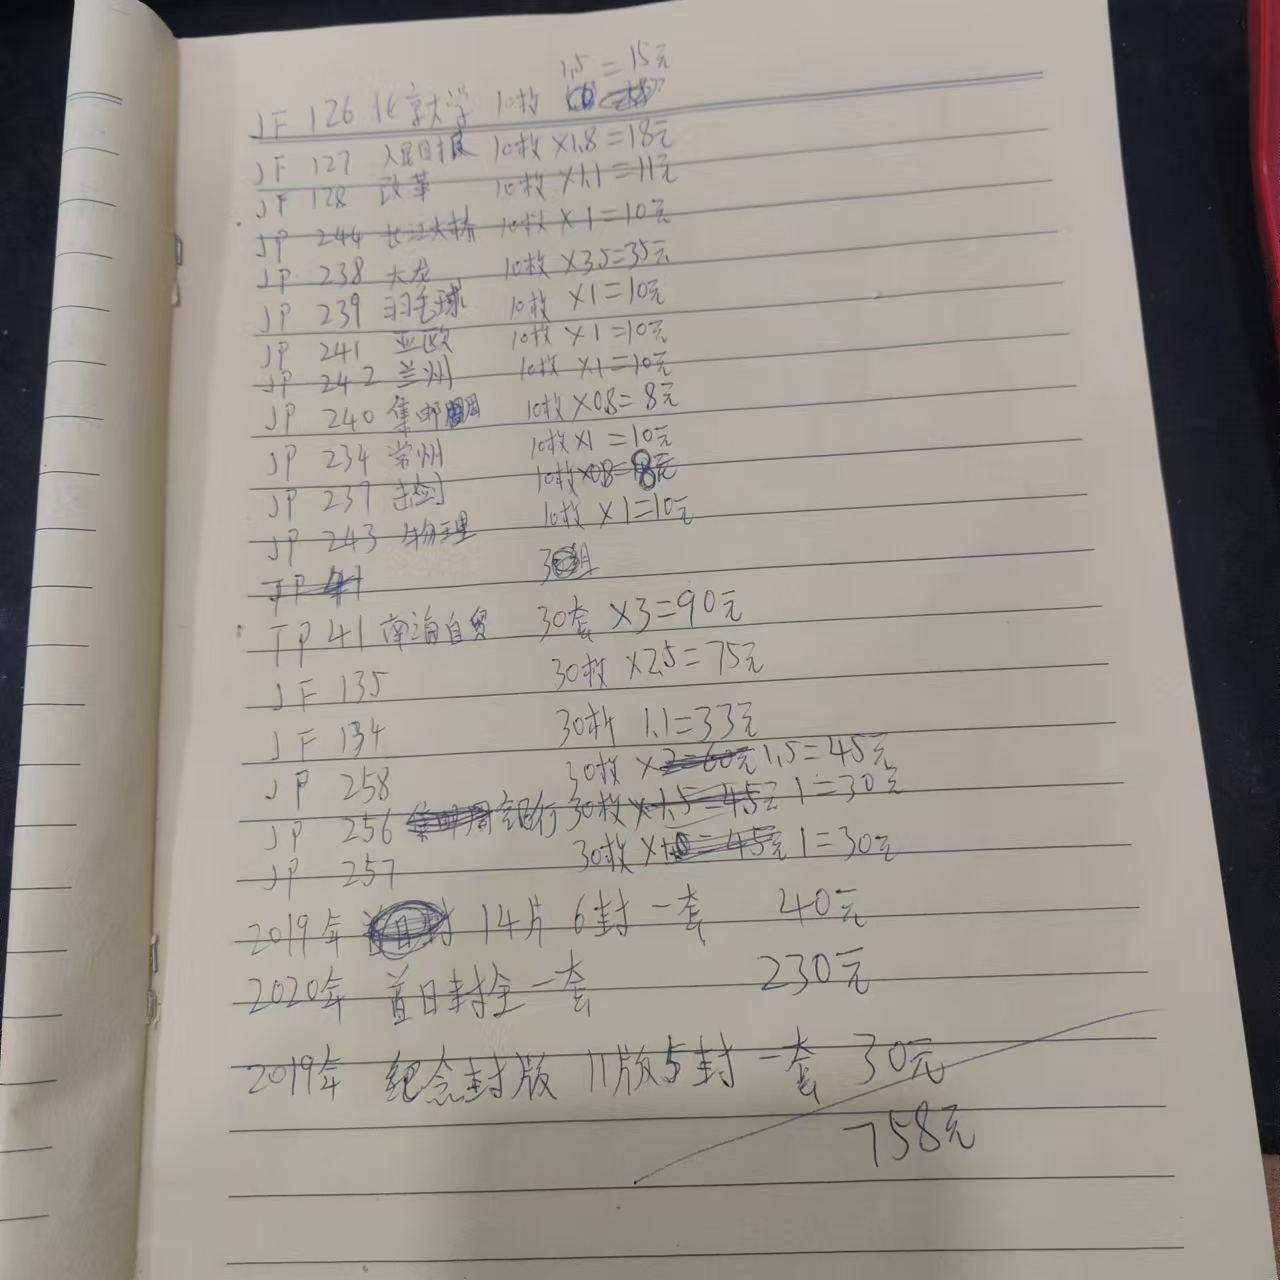 JF 126 北京大学 10枚 1.5=15元
JF 127 人民日报 10枚×1.8=18元
JF 128 改革 10枚×1.1=11元
JP 244 长江大桥 10枚×1=10元
JP 238 大龙 10枚×3.5=35元
JP 239 羽毛球 10枚×1=10元
JP 241 亚欧 10枚×1=10元
JP 242 兰州 10枚×1=10元
JP 240 集邮周 10枚×0.8=8元
JP 234 常州 10枚×1=10元
JP 237 击剑 10枚×0.8=8元
JP 243 物理 10枚×1=10元
TP 41 30组
TP 41 南海自贸 30套×3=90元
JF 135 30枚×2.5=75元
JF 134 30枚 1.1=33元
JP 258 30枚×2=60元 1.5=45元
JP 256 集邮周 银行 30枚×1.5=45元 1=30元
JP 257 30枚× =45元 1=30元
2019年 14片 6封一套 40元
2020年 首日封全一套 230元
2019年 纪念封版 11版5封一套 30元
758元